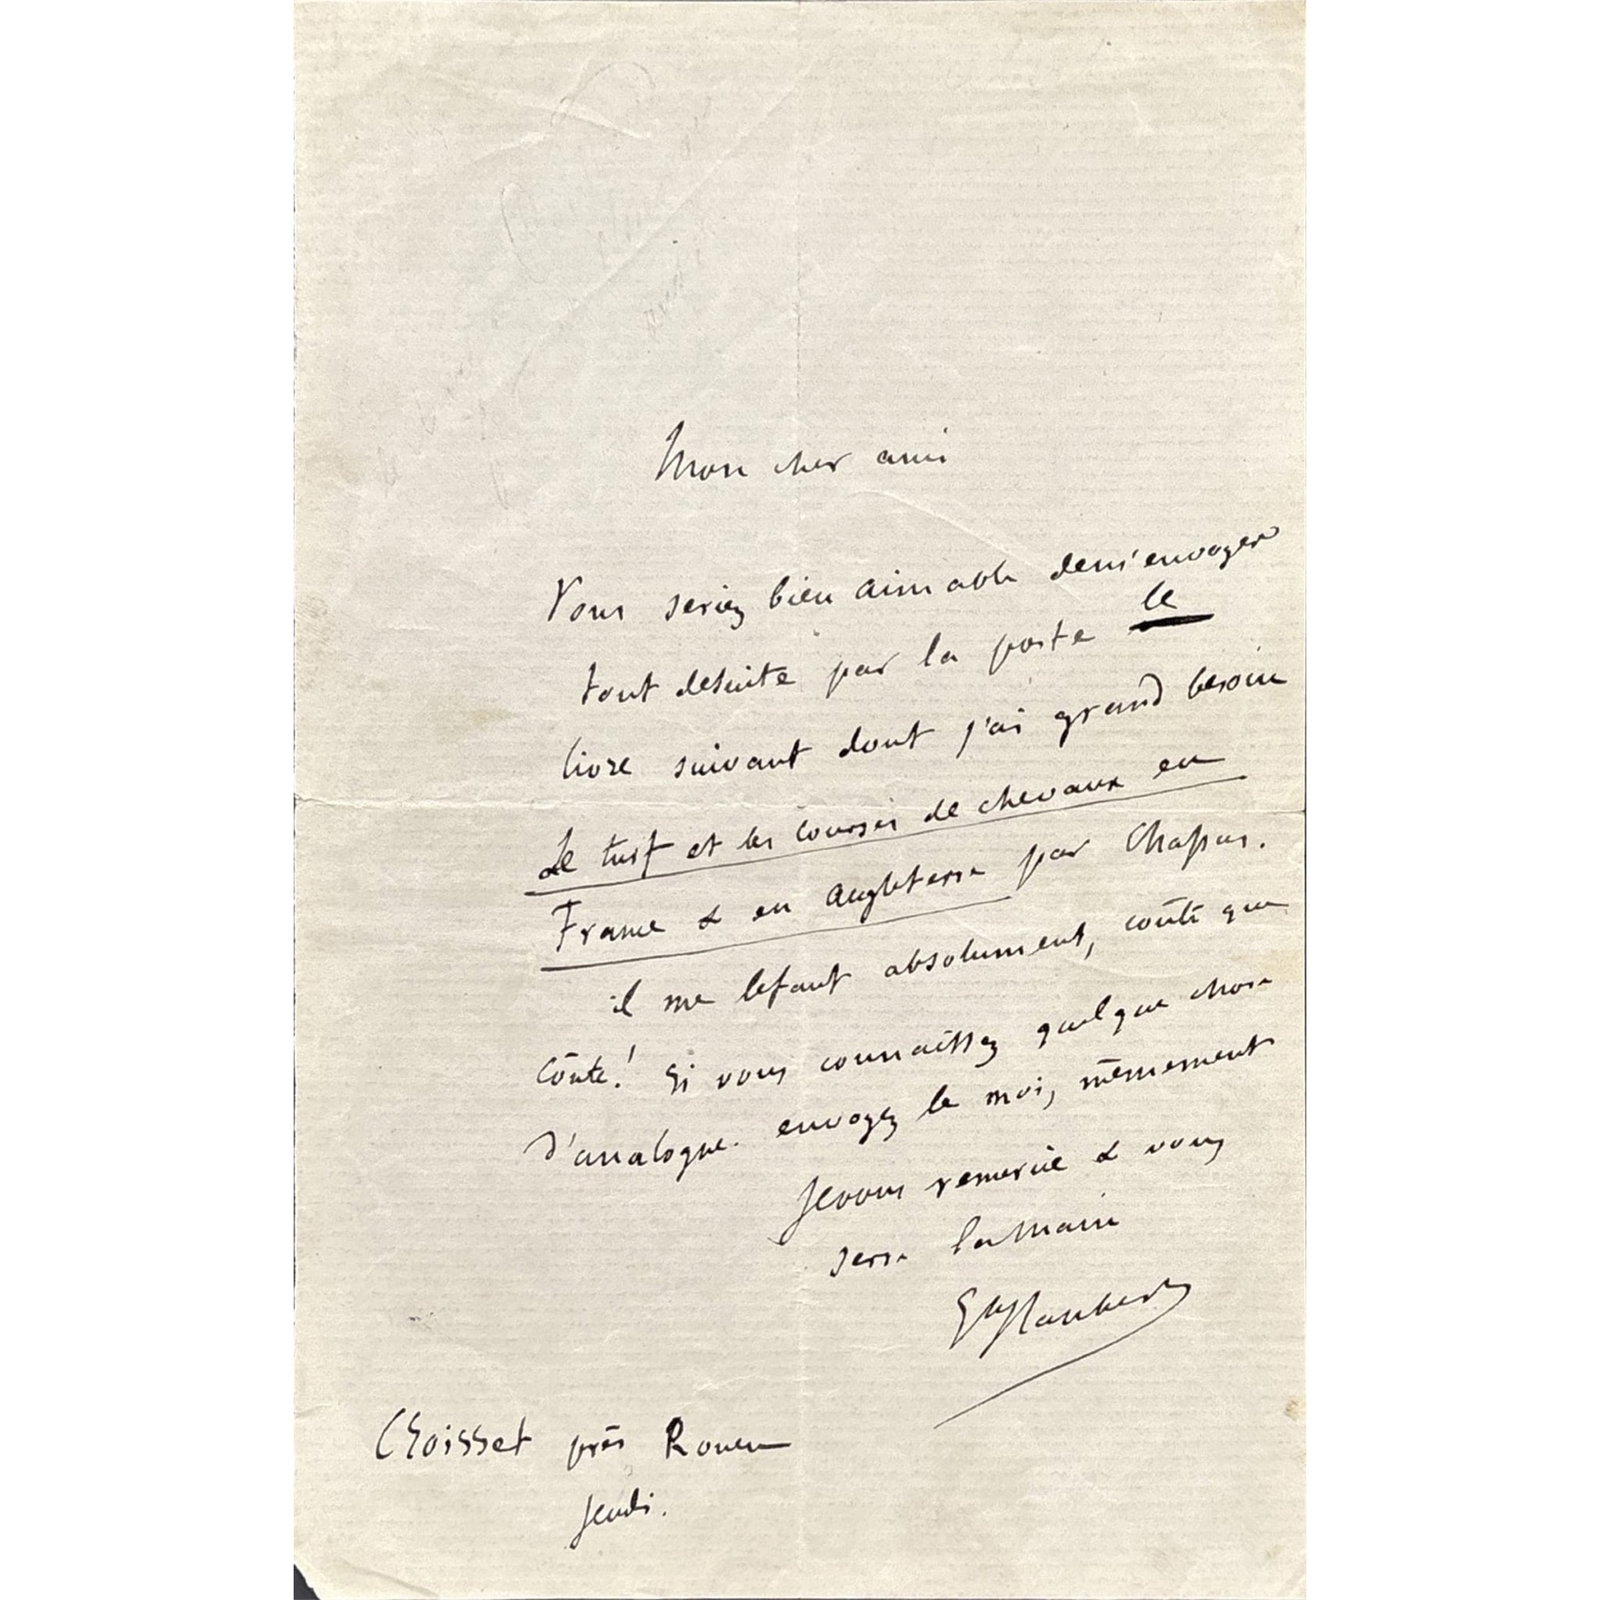 Mon cher ami
Vous seriez bien aimable de m'envoyer
tout de suite par la poste le
livre suivant dont j'ai grand besoin
Le turf et les courses de chevaux en
France & en Angleterre par Chapus.
il me le faut absolument, coûte que
coûte! Si vous connaissez quelque chose
d'analogue. envoyez le moi, mêmement
Je vous remercie & vous
serre la main
Gve Flaubert
Croisset près Rouen
Jeudi.